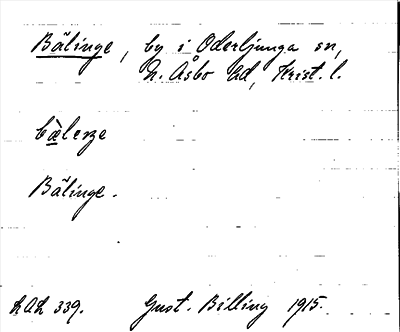 Bälinge, by i Oderljunga sn,
N. Åsbo hd, Krist. l.
Bälinge.
LAL 339. Gust. Billing 1915.